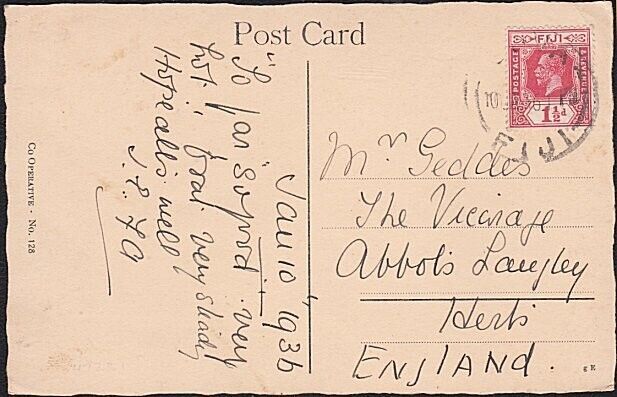 Post Card
FIJI
POSTAGE
& REVENUE
1½d
FIJI
Jan 10 1936
"So far" so good. very
hot; boat very shady
Hope all is well
Mr Geddes
The Vicarage
Abbots Langley
Herts
ENGLAND.
CO OPERATIVE · No. 128